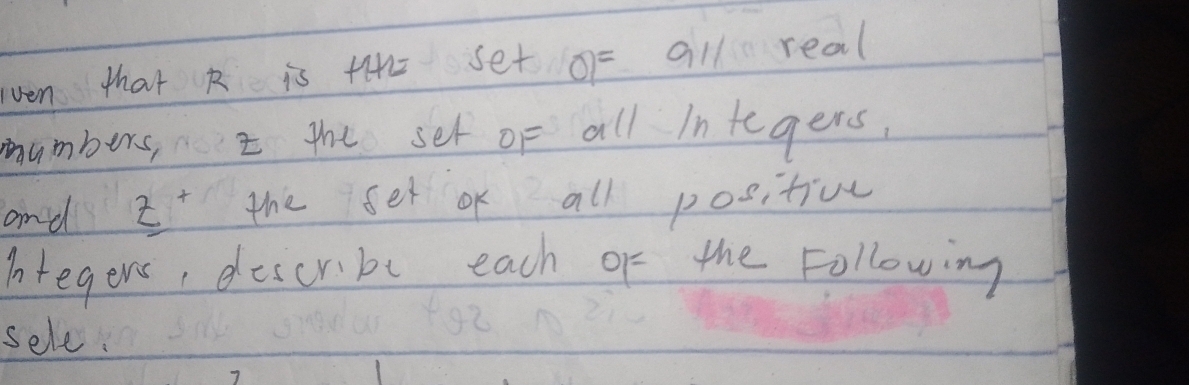 iven that R is the set OF all real
numbers, Z the set OF all Integers,
and Z+ the set of all positive
Integers, describe each OF the Following
sele.